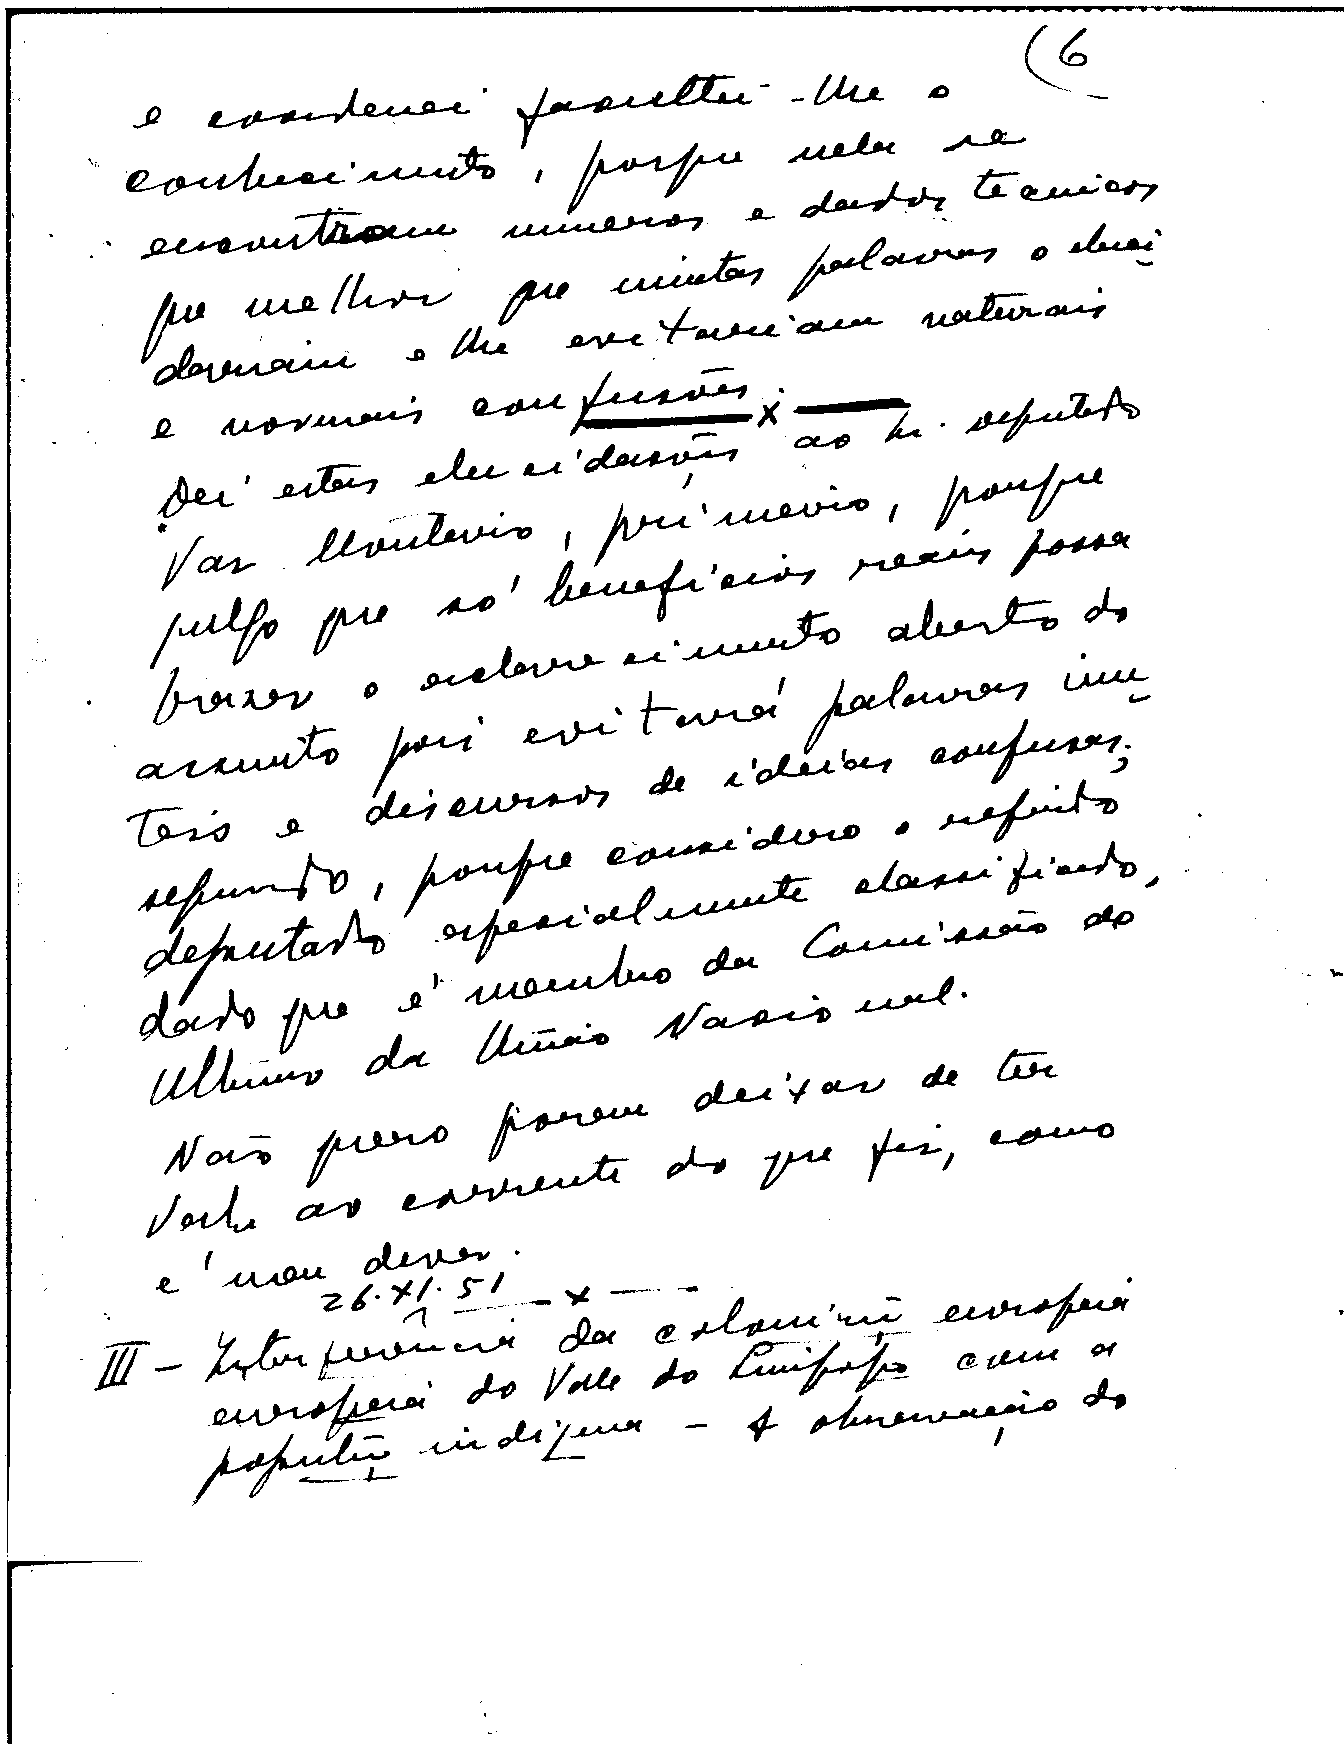 (6
e coordenei facultei-lhe o
conhecimento, porque nela se
encontram numeros e dados tecnicos
que melhor que muitas palavras o eluci
davam e lhe evitariam naturais
e normais confusões.
x
Dei estas elucidações ao Sr. deputado
Vaz Monteiro, primeiro, porque
julgo que só beneficios reais possa
trazer o esclarecimento aberto do
assunto pois evitará palavras inu
teis e discursos de ideias confusas;
segundo, porque considero o referido
deputado especialmente classificado,
dado que é membro da Comissão do
Ultramar da União Nacional.
Não quero porem deixar de ter
Vexa ao corrente do que fiz, como
é meu dever.
26.XI.51
— x —
III - Interferência da colonizõ europeia
europeia do Vale do Limpopo com a
populõ indigena - A observação do